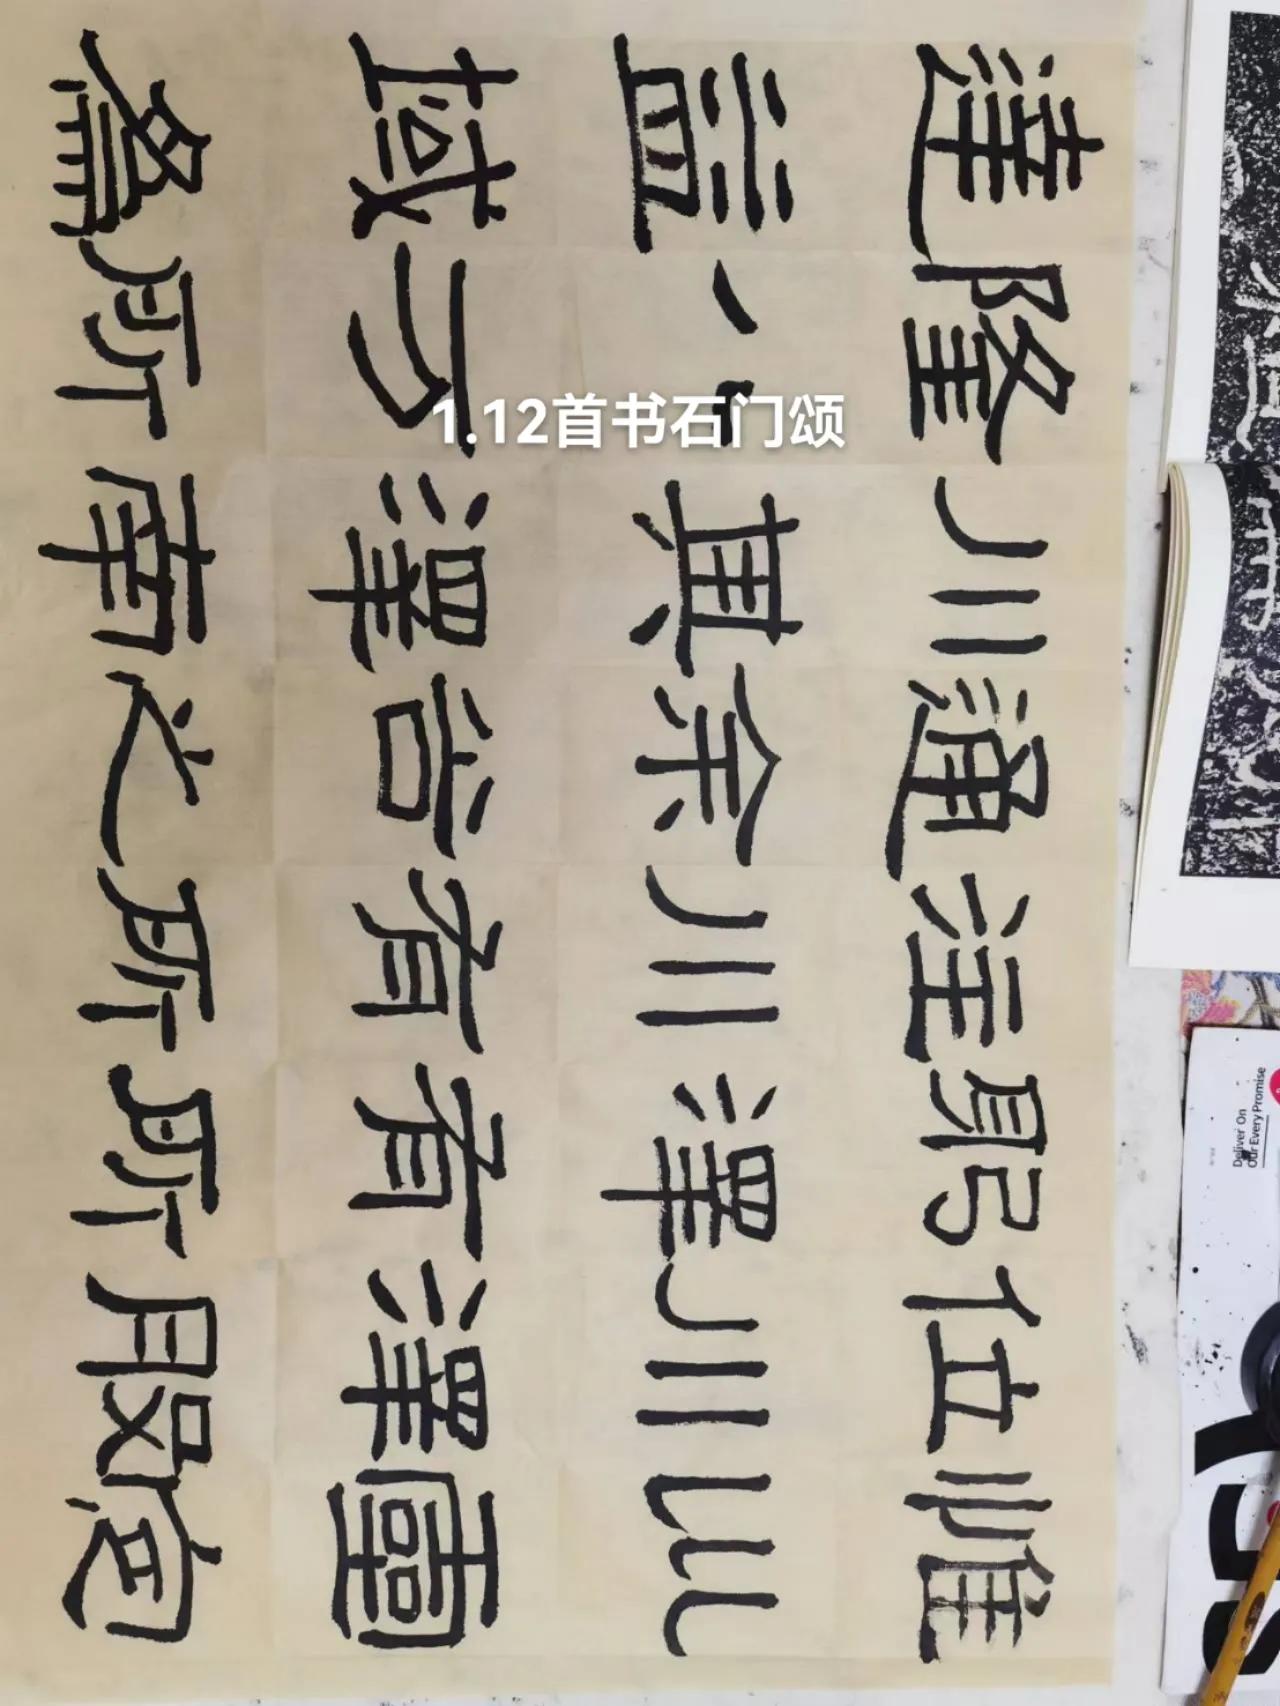 惟巛靈定
位川澤股
躬澤有所
注川有所
通余谷之
川其澤南
隆八方所
達益域為
1.12首书石门颂
Deliver On
Our Every Promise